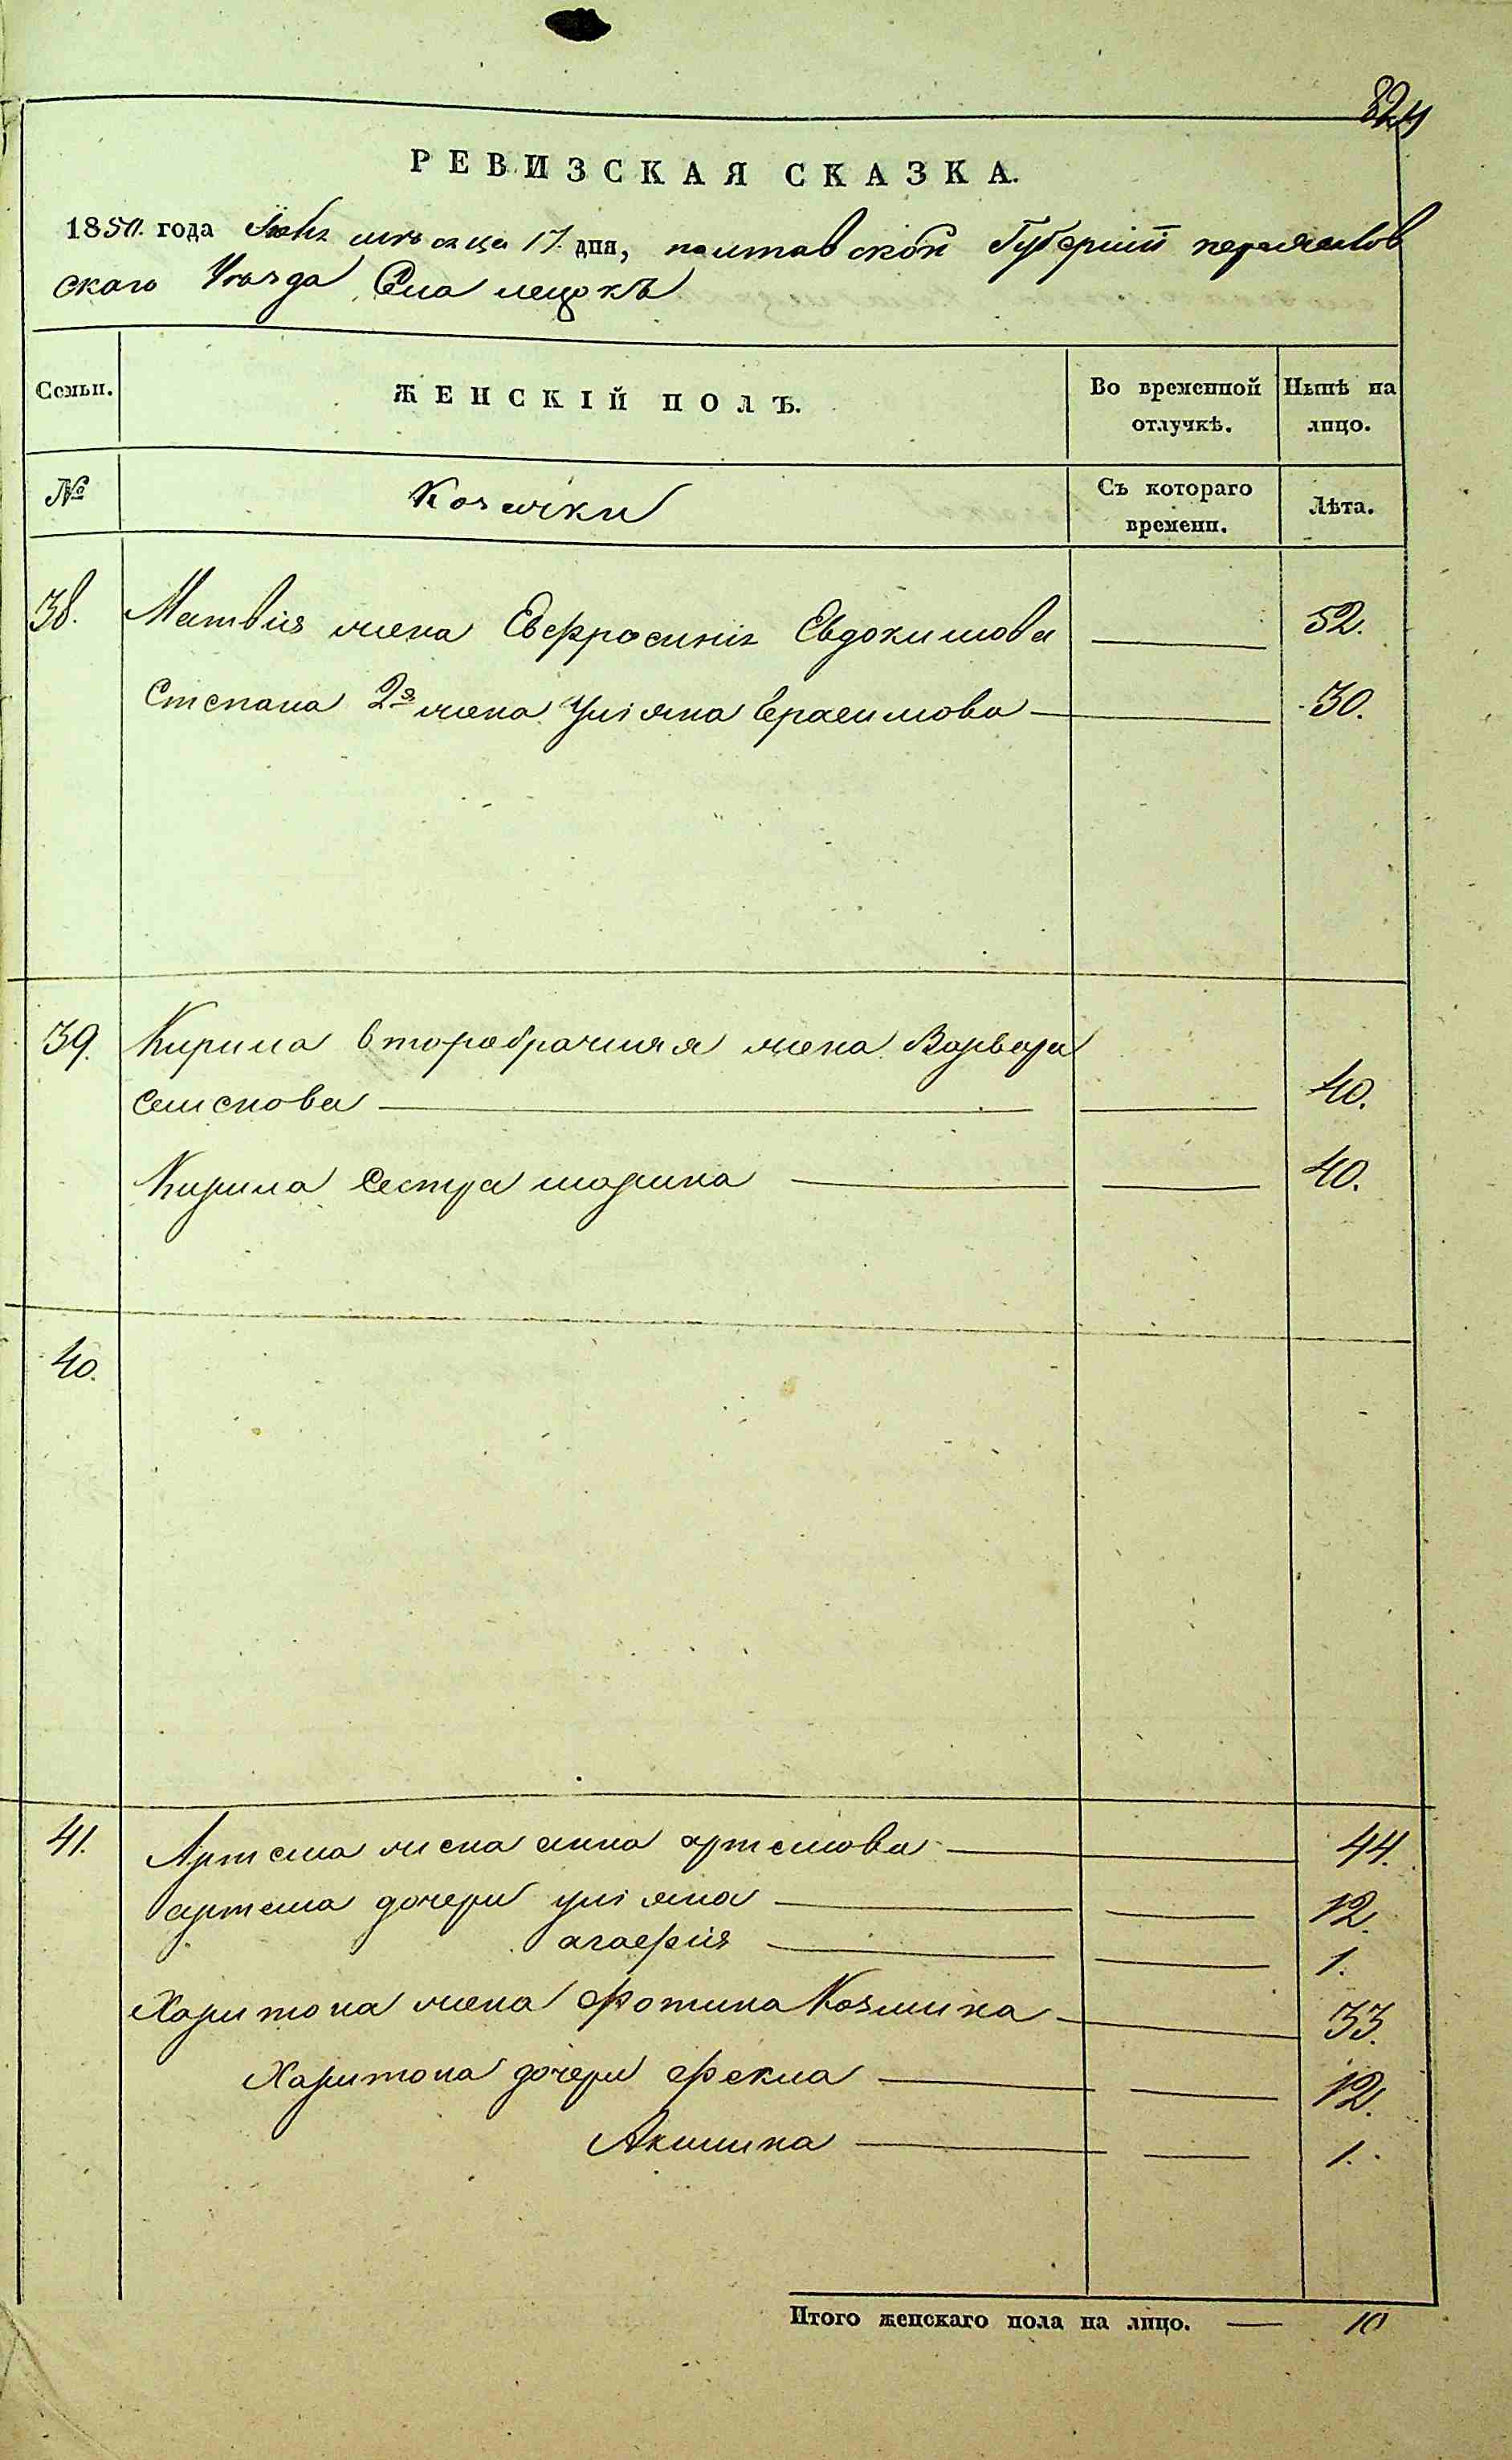 РЕВИЗСКАЯ СКАЗКА.
1850. года мѣсяца 17. дня, полтавской Губерніи переяслов
скаго Уѣзда Села лецокъ
Семьи.
ЖЕНСКІЙ ПОЛЪ.
Во временной отлучкѣ.
Нынѣ на лицо.
№
Козачки
Съ котораго времени.
Лѣта.
38. Матвія жена Евфросинія Евдокимова 52.
Степана 2я жена Уліяна Герасимова 30.
39. Кирила второбрачная жена Варвара
семенова 40.
Кирила сестра марина 40.
40.
41. Артема жена анна артемова 44.
артема дочери уліяна 12.
агафія 1.
Харитона жена фотина Козмина 33.
Харитона дочери фекла 12.
Акилина 1.
Итого женскаго пола на лицо. — 10